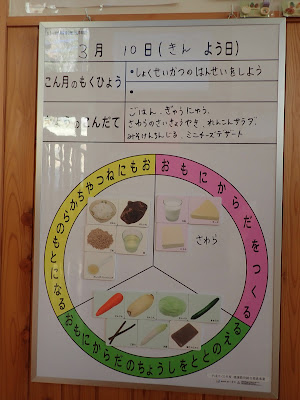 3月 10日(きん よう日)
こん月のもくひょう
・しょくせいかつの はんせいをしよう
・
きょうのこんだて
ごはん、ぎゅうにゅう、
さわらのさいきょうやき、れんこんサラダ、
みそけんちんじる、ミニチーズデザート
おもにねつやちからのもとになる
おもにからだをつくる
さわら
おもにからだのちょうしをととのえる